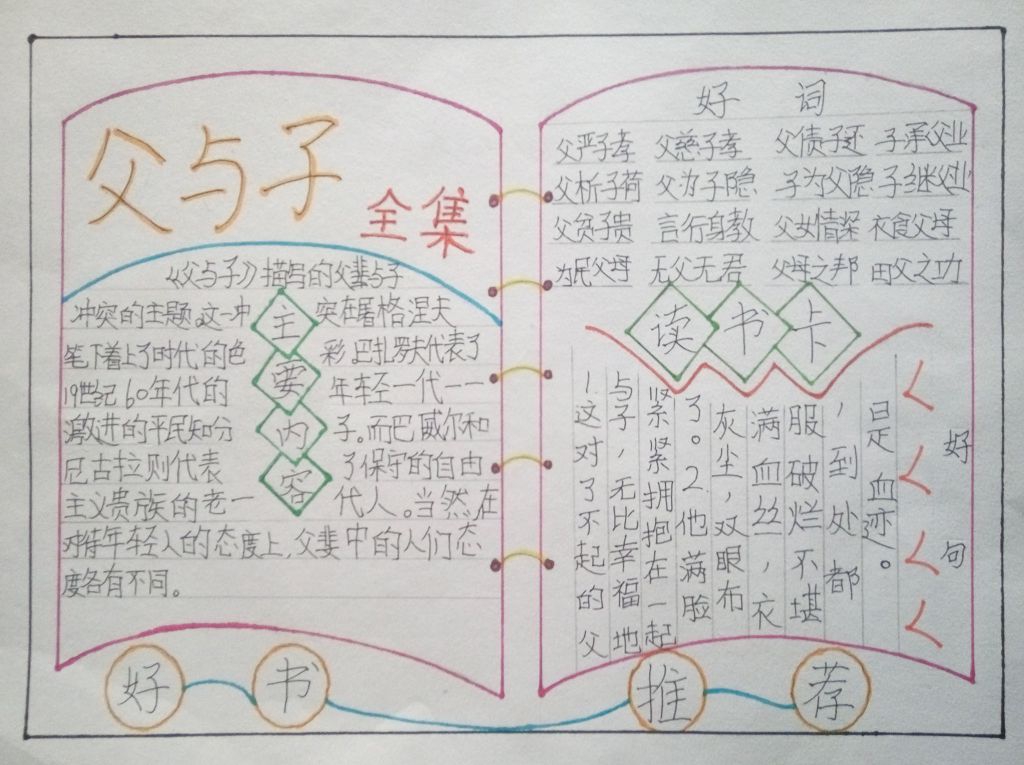 父与子
全集
《父与子》描写的父辈与子
冲突的主题.这一冲 突在屠格涅夫
笔下着上了时代的色 彩.巴扎罗夫代表了
19世纪60年代的 年轻一代——
激进的平民知分 子。而巴威尔和
尼古拉则代表 了保守的自由
主义贵族的老一 代人。当然,在
对待年轻人的态度上,父辈中的人们态
度各有不同。
主
要
内
容
好 词
父严子孝 父慈子孝 父债子还 子承父业
父析子荷 父为子隐 子为父隐 子继父业
父贫子贵 言行身教 父女情深 衣食父母
为民父母 无父无君 父母之邦 田父之功
读书卡
1.这对了不起的父
与子,无比幸福地
紧紧拥抱在一起
了。2.他满脸
灰尘,双眼布
满血丝,衣
服破烂不堪
,到处都
是血迹。
好句
好书推荐